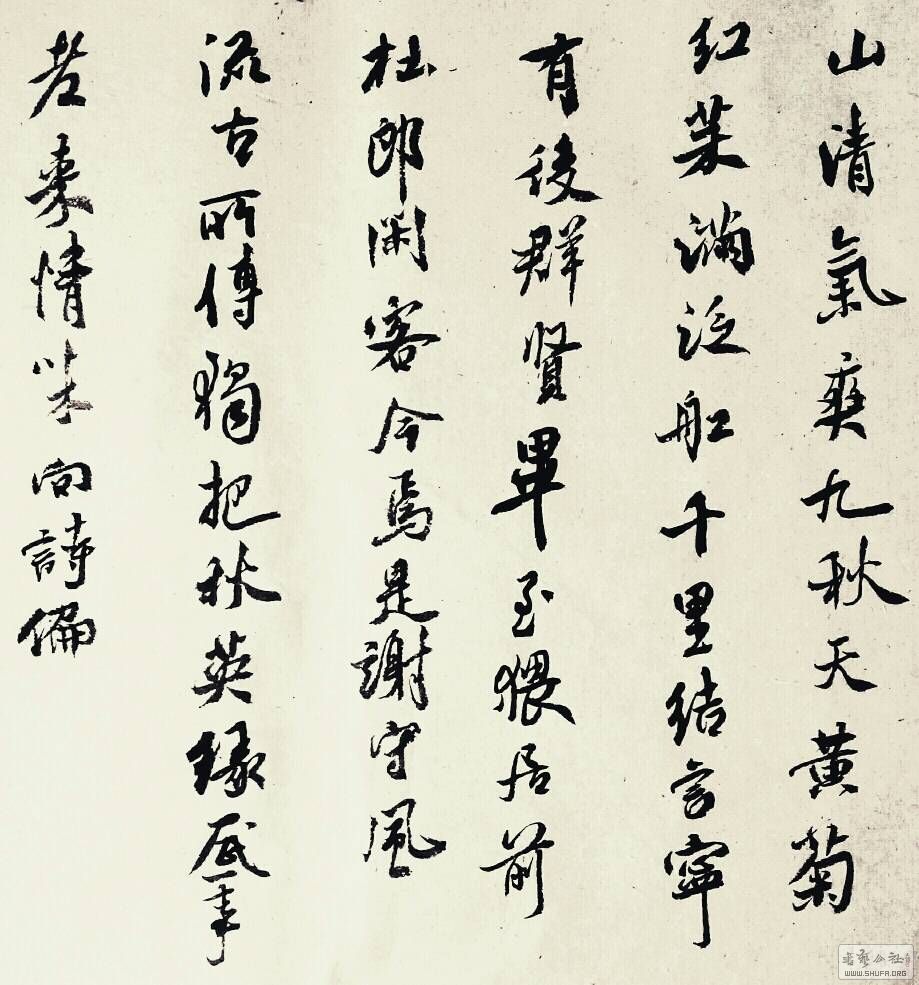 山清氣爽九秋天黃菊
紅茱滿泛船千里結言寧
有後群賢畢至猥居前
杜郎閑客今焉是謝守風
流古所傳獨把秋英緣底事
老來情味向詩偏
書藝公社
WWW.SHUFA.ORG